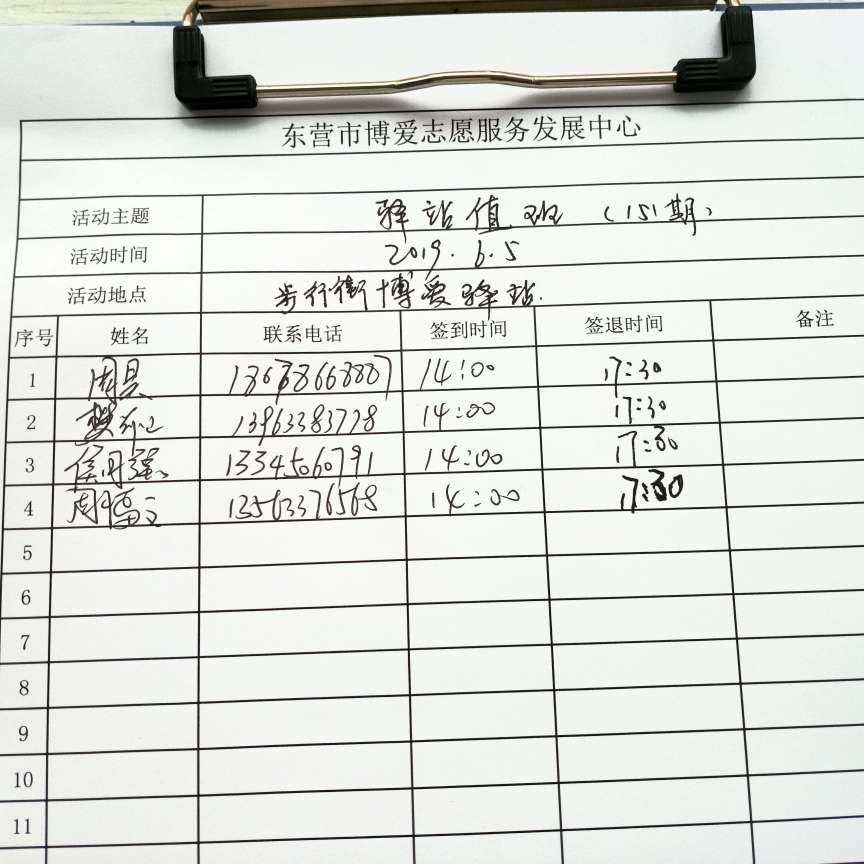 东营市博爱志愿服务发展中心
活动主题 驿站值班（151期）
活动时间 2019.6.5
活动地点 步行街博爱驿站.
序号 姓名 联系电话 签到时间 签退时间 备注
1 周具 18678668887 14:00 17:30
2 13963383778 14:00 17:30
3 侯丹强 13345060791 14:00 17:30
4 周福立 13563376568 14:00 17:30
5
6
7
8
9
10
11